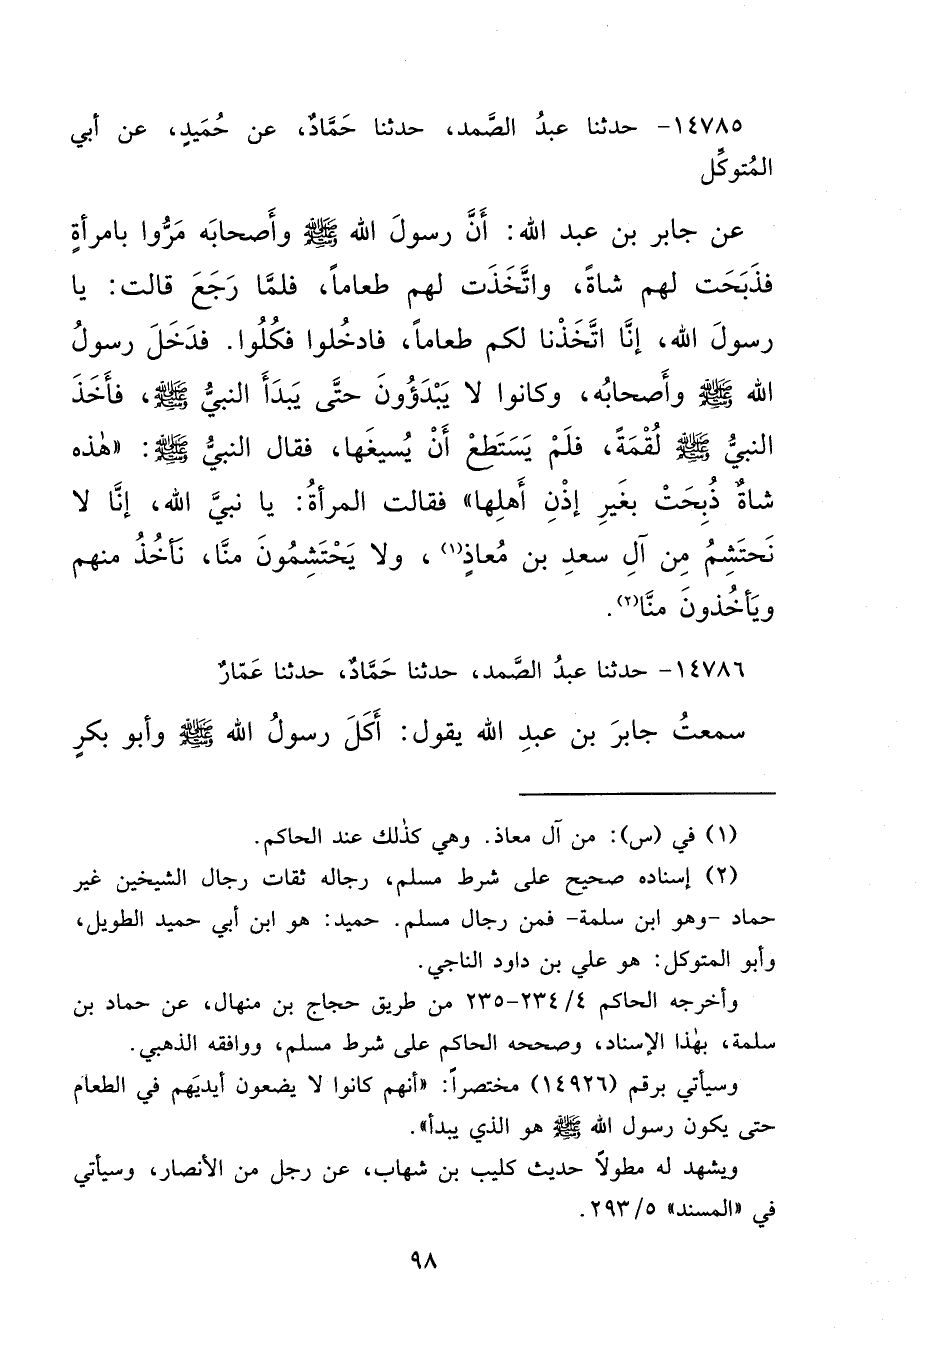 ١٤٧٨٥- حدثنا عبدُ الصَّمد، حدثنا حَمَّادٌ، عن حُمَيدٍ، عن أبي
المُتوكِّل
عن جابر بن عبد الله: أَنَّ رسولَ الله ﷺ وأَصحابَه مَرُّوا بامرأةٍ
فذَبَحَت لهم شاةً، واتَّخَذَت لهم طعاماً، فلمَّا رَجَعَ قالت: يا
رسولَ الله، إنَّا اتَّخَذْنا لكم طعاماً، فادخُلوا فكُلُوا. فدَخَلَ رسولُ
الله ﷺ وأَصحابُه، وكانوا لا يَبْدَؤُونَ حتَّى يَبدَأَ النبيُّ ﷺ، فأَخَذَ
النبيُّ ﷺ لُقْمَةً، فلَمْ يَسَتَطِعْ أَنْ يُسيغَها، فقال النبيُّ ﷺ: «هٰذه
شاةٌ ذُبِحَتْ بغَيرِ إذْنِ أَهلِها» فقالت المرأةُ: يا نبيَّ الله، إنَّا لا
نَحتَشِمُ مِن آلِ سعدِ بن مُعاذٍ(١)، ولا يَحْتَشِمُونَ منَّا، نَأخُذُ منهم
ويَأخُذونَ منَّا(٢).
١٤٧٨٦- حدثنا عبدُ الصَّمد، حدثنا حَمَّادٌ، حدثنا عَمّارٌ
سمعتُ جابرَ بن عبدِ الله يقول: أَكَلَ رسولُ الله ﷺ وأبو بكرٍ
(١) في (س): من آل معاذ. وهي كذٰلك عند الحاكم.
(٢) إسناده صحيح على شرط مسلم، رجاله ثقات رجال الشيخين غير
حماد -وهو ابن سلمة- فمن رجال مسلم. حميد: هو ابن أبي حميد الطويل،
وأبو المتوكل: هو علي بن داود الناجي.
وأخرجه الحاكم ٢٣٤/٤-٢٣٥ من طريق حجاج بن منهال، عن حماد بن
سلمة، بهٰذا الإسناد، وصححه الحاكم على شرط مسلم، ووافقه الذهبي.
وسيأتي برقم (١٤٩٢٦) مختصراً: «أنهم كانوا لا يضعون أيديَهم في الطعام
حتى يكون رسول الله ﷺ هو الذي يبدأ».
ويشهد له مطولاً حديث كليب بن شهاب، عن رجل من الأنصار، وسيأتي
في «المسند» ٢٩٣/٥.
٩٨